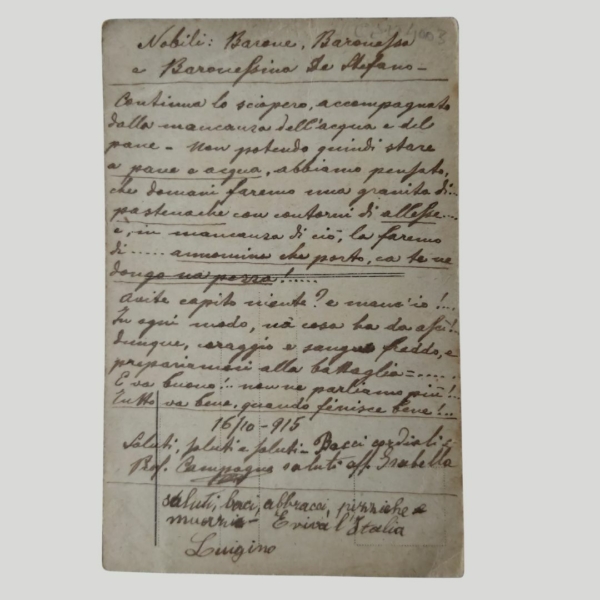 Nobili: Barone, Baronessa
e Baronessina De Stefano -
Continua lo sciopero, accompagnato
dalla mancanza dell'acqua e del
pane - Non potendo quindi stare
a pane e acqua, abbiamo pensato,
che domani faremo una granita di...
pastenache con contorni di allesse...
e, in mancanza di ciò, la faremo
di ..... annomine che porto, ca te ne
dongo na pezza!.....
Avite capito niente? e manc'io!...
In ogni modo, nà cosa ha da ascì!..
dunque, coraggio e sangue freddo, e
prepariamoci alla battaglia = .....
E va buono!.. non ne parliamo più!..
Tutto va bene, quando finisce bene!...
16/10 - 915
Saluti, saluti e saluti - Bacci cordiali e
Prof. Campagna saluti aff. Isabella
saluti, baci, abbracci, pizziche e
muorzi - Evviva l'Italia
Luigino